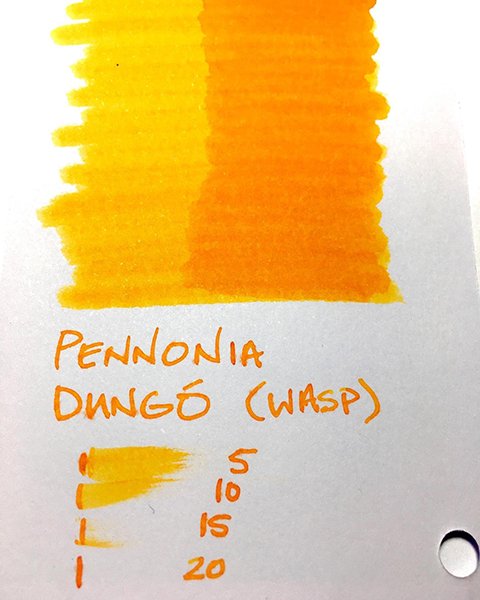 PENNONIA
DUNGÓ (WASP)
5
10
15
20